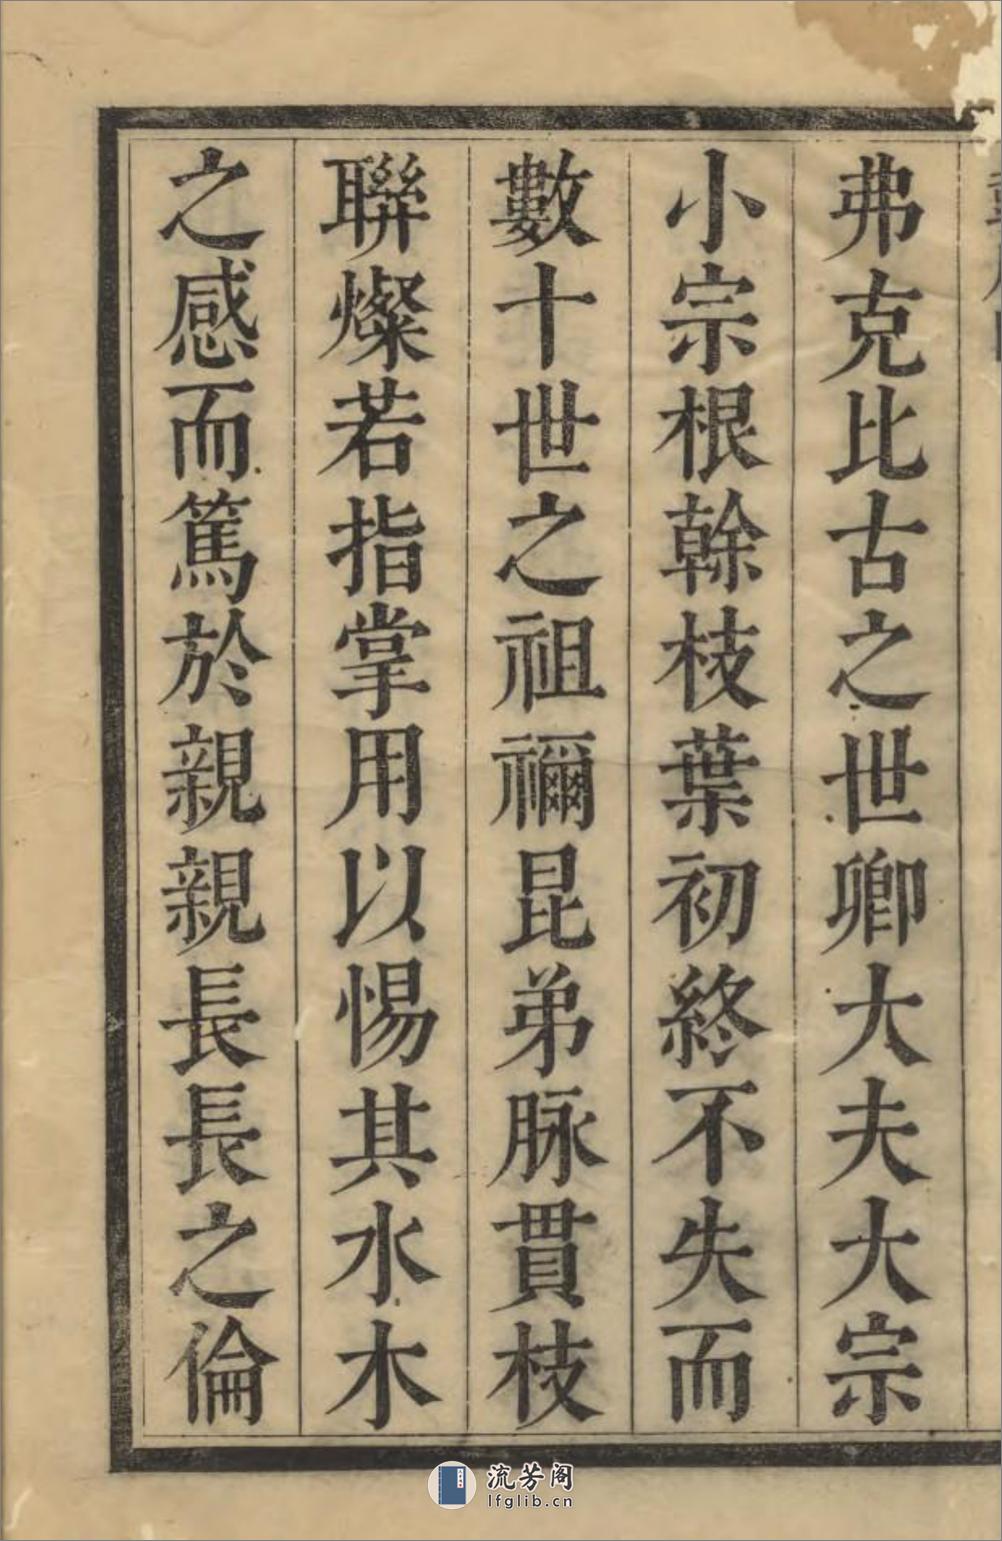 弗克比古之世卿大夫大宗
小宗根榦枝葉初終不失而
數十世之祖禰昆弟脉貫枝
聯燦若指掌用以惕其水木
之感而篤於親親長長之倫
流芳阁
lfglib.cn